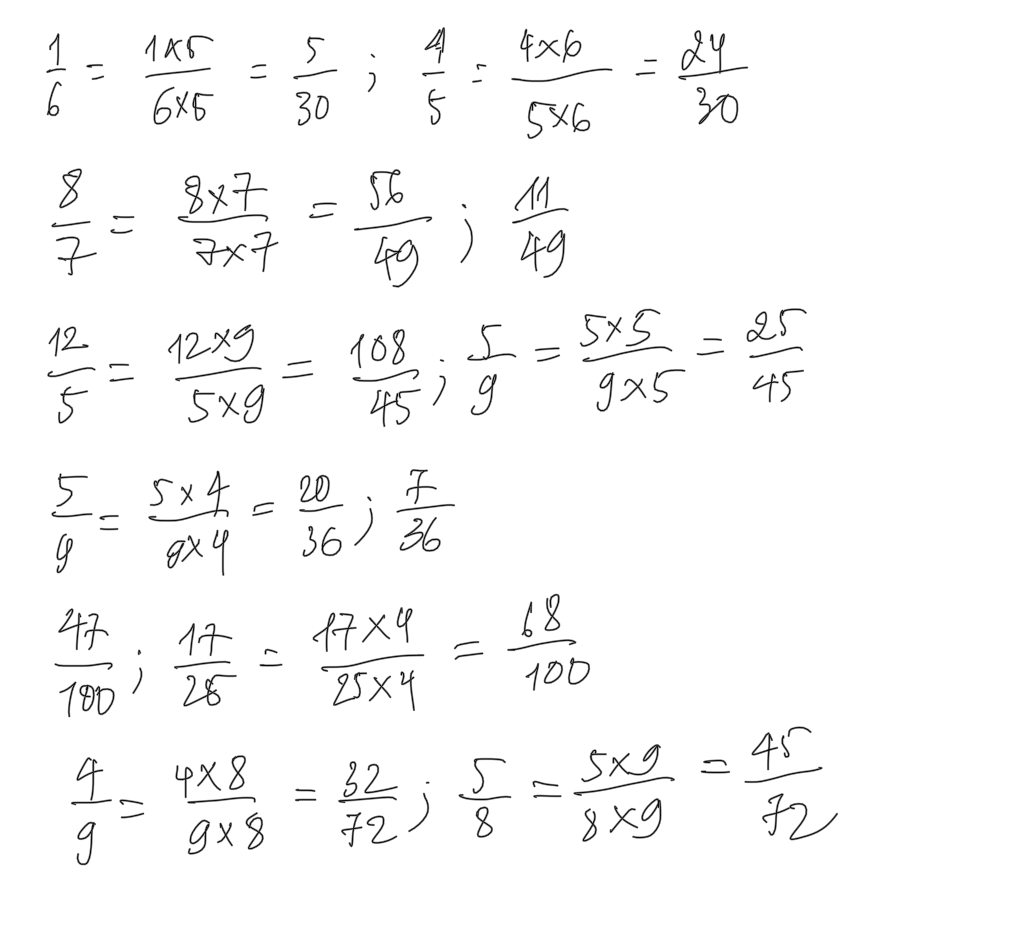 1/6 = 1x5/6x5 = 5/30 ; 4/5 = 4x6/5x6 = 24/30
8/7 = 8x7/7x7 = 56/49 ; 11/49
12/5 = 12x9/5x9 = 108/45 ; 5/9 = 5x5/9x5 = 25/45
5/9 = 5x4/9x4 = 20/36 ; 7/36
47/100 ; 17/25 = 17x4/25x4 = 68/100
4/9 = 4x8/9x8 = 32/72 ; 5/8 = 5x9/8x9 = 45/72